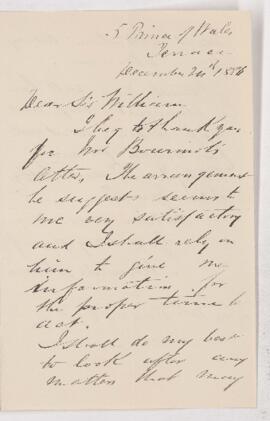 5 Prince of Wales
Terrace
December 24th 1886
Dear Sir William
I beg to thank you
for Mr Bourinot's
letter. The arrangement
he suggests seems to
me very satisfactory
and I shall rely on
him to give me
information for
the proper time to
act.
I shall do my best
to look after any
matters that may